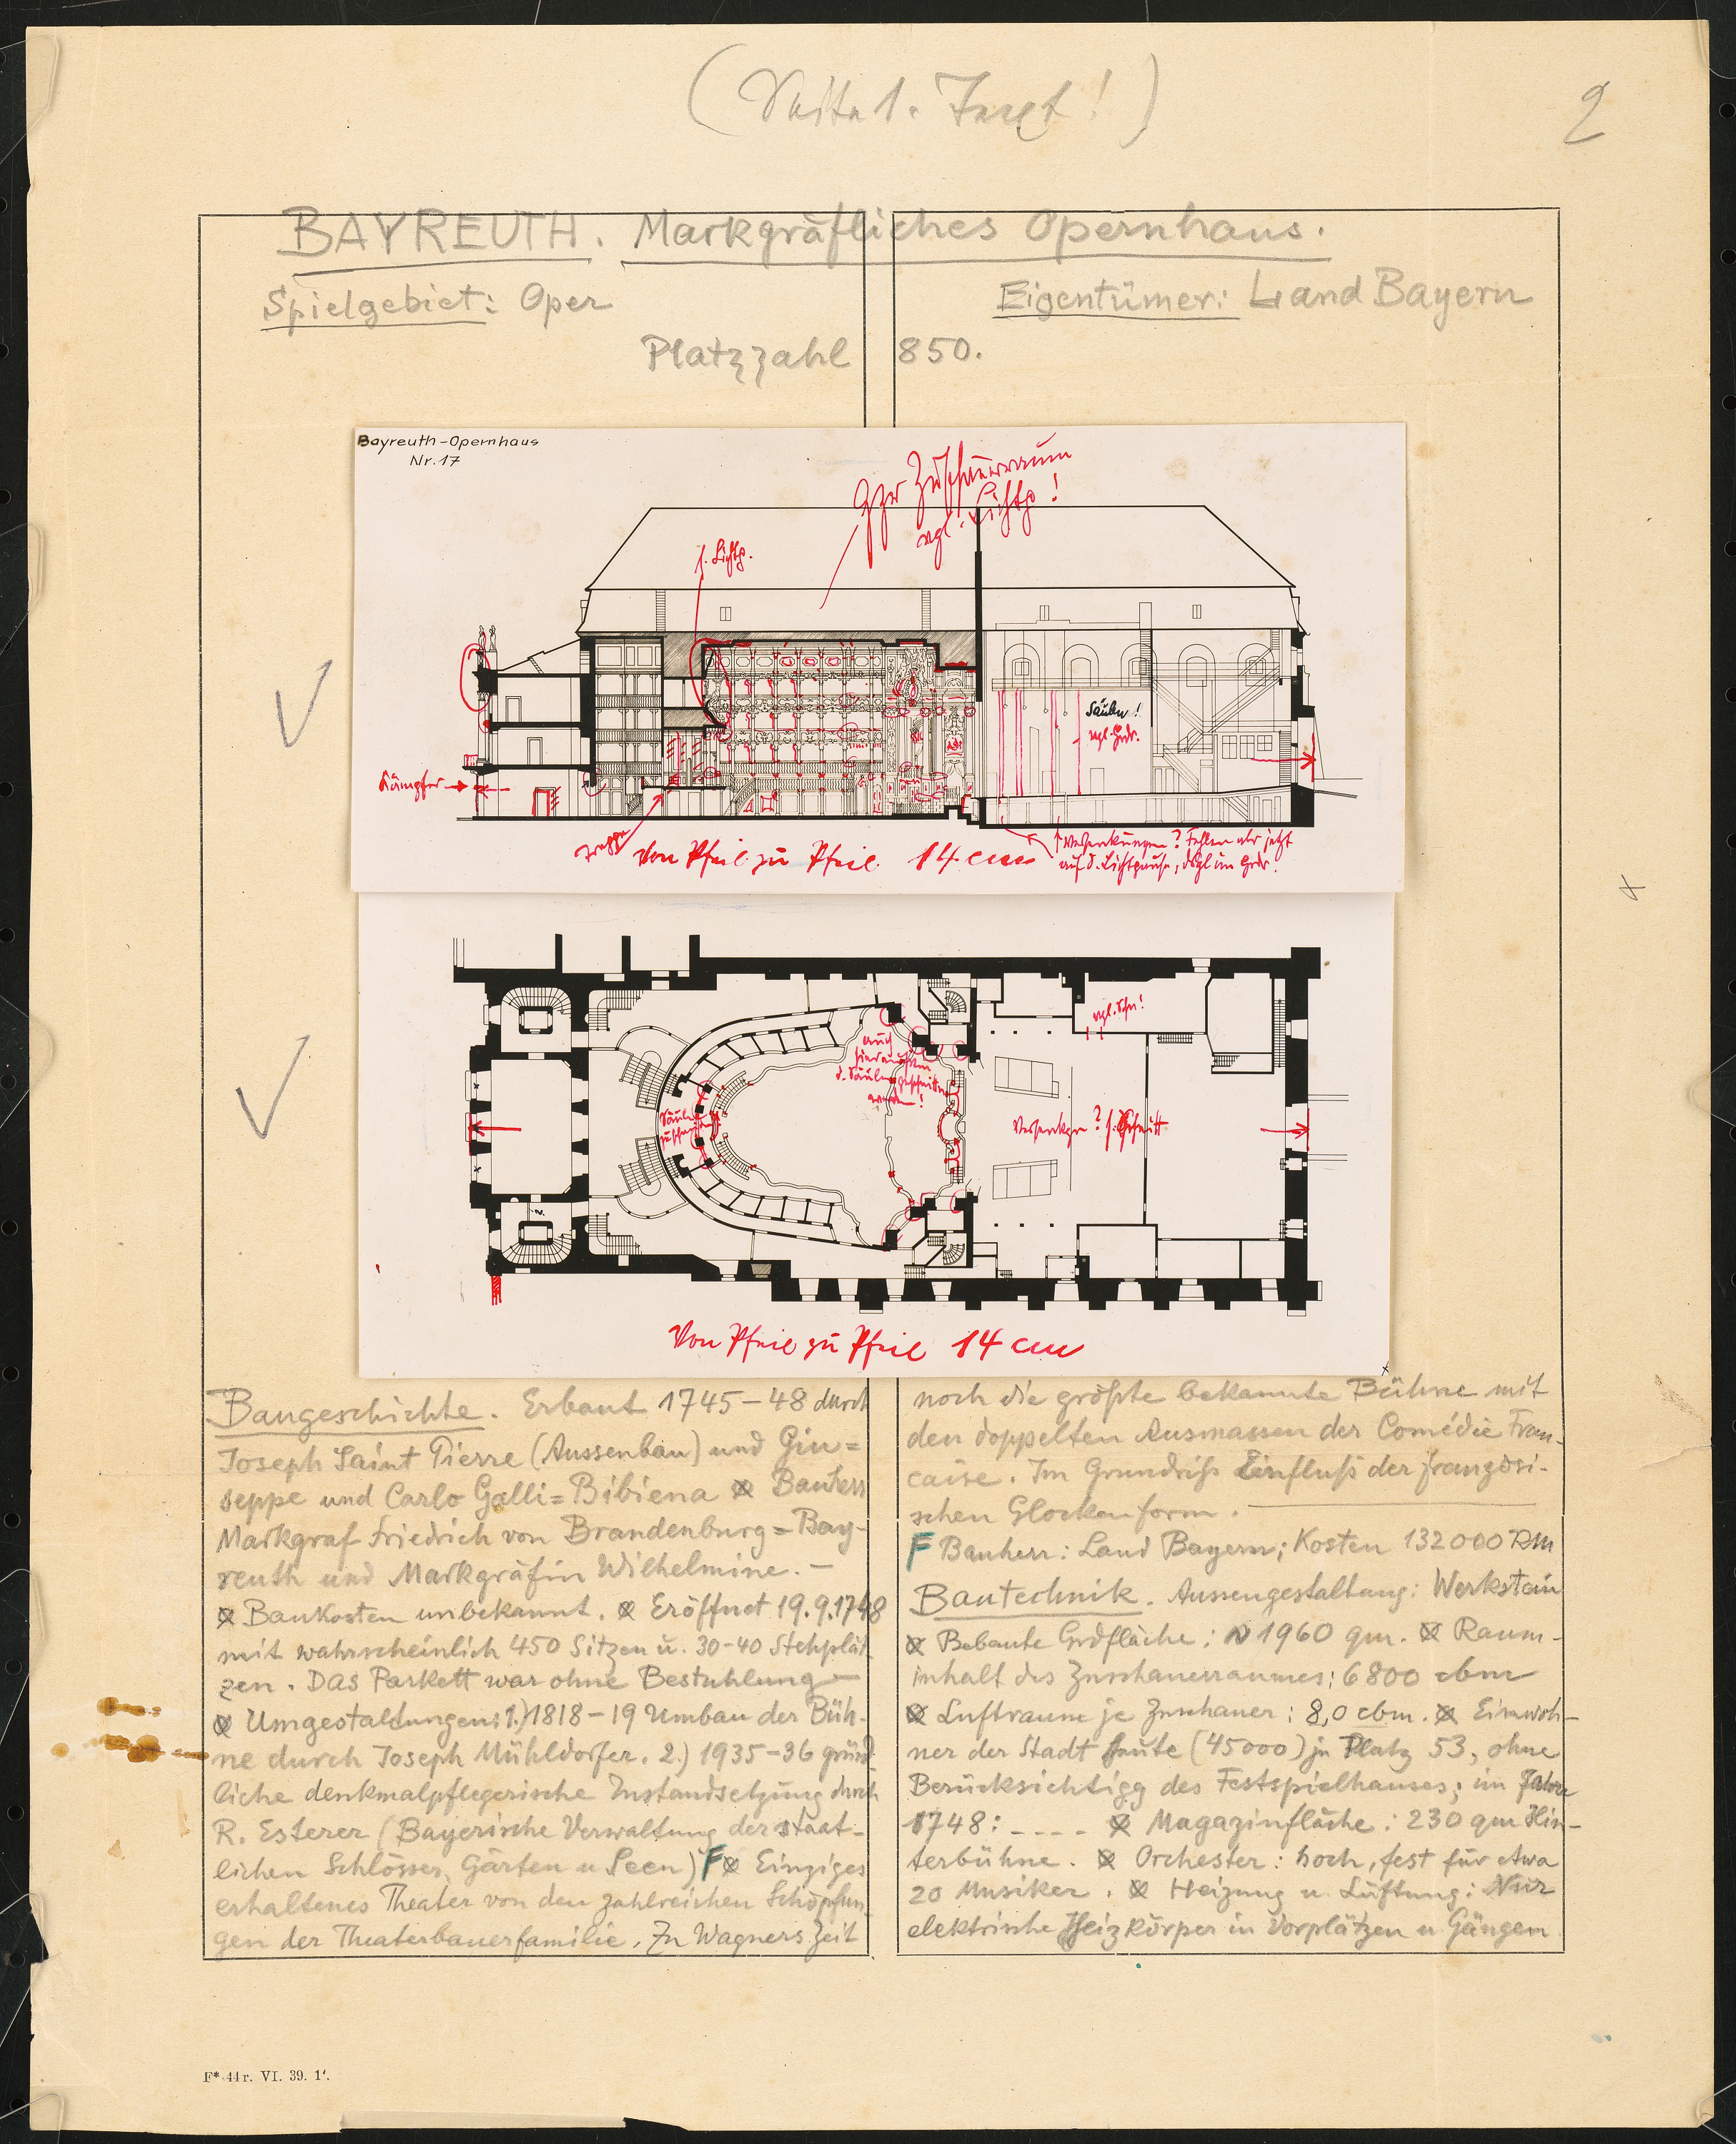 (Seite 1. Text!)
2
BAYREUTH. Markgräfliches Opernhaus.
Spielgebiet: Oper
Eigentümer: Land Bayern
Platzzahl 850.
Bayreuth-Opernhaus
Nr. 17
Zuschauerraum
vgl. Lichtp!
s. Lichtp.
Säulen!
vgl. Grdr.
Kämpfer
Treppe
Von Pfeil zu Pfeil 14 cm
Versenkungen? Fehlen mir jetzt
auf d. Lichtpause, dsgl im Grdr.
vgl. Schn!
auch
hier müssen
d. Säulen geschnitten
werden!
Säulen
Versenkgn? s. Schnitt
Von Pfeil zu Pfeil 14 cm
Baugeschichte. Erbaut 1745-48 durch
Joseph Saint Pierre (Aussenbau) und Giu=
seppe und Carlo Galli=Bibiena Bauherr
Markgraf Friedrich von Brandenburg=Bay-
reuth und Markgräfin Wilhelmine. -
Baukosten unbekannt. Eröffnet 19.9.1748
mit wahrscheinlich 450 Sitzen u. 30-40 Stehplät
zen. Das Parkett war ohne Bestuhlung -
Umgestaltungen: 1.) 1818-19 Umbau der Büh-
ne durch Joseph Mühldorfer. 2.) 1935-36 gründ-
liche denkmalpflegerische Instandsetzung durch
R. Esterer (Bayerische Verwaltung der staat-
lichen Schlösser, Gärten u Seen) F Einziges
erhaltenes Theater von den zahlreichen Schöpfun-
gen der Theaterbauerfamilie. Zu Wagners Zeit
noch die größte bekannte Bühne mit
den doppelten Ausmassen der Comédie Fran-
caise. Im Grundriß Einfluß der französi-
schen Glockenform.
F Bauherr: Land Bayern; Kosten 132000 RM
Bautechnik. Aussengestaltung: Werkstein
Bebaute Grdfläche: ~ 1960 qm. Raum-
inhalt des Zuschauerraumes: 6800 cbm
Luftraum je Zuschauer: 8,0 cbm. Einwoh-
ner der Stadt heute (45000) je Platz 53, ohne
Berücksichtigg des Festspielhauses; im Jahre
1748: ---- Magazinfläche: 230 qm Hin-
terbühne. Orchester: hoch, fest für etwa
20 Musiker. Heizung u. Lüftung: Nur
elektrische Heizkörper in Vorplätzen u Gängen
F* 44r. VI. 39. 1'.